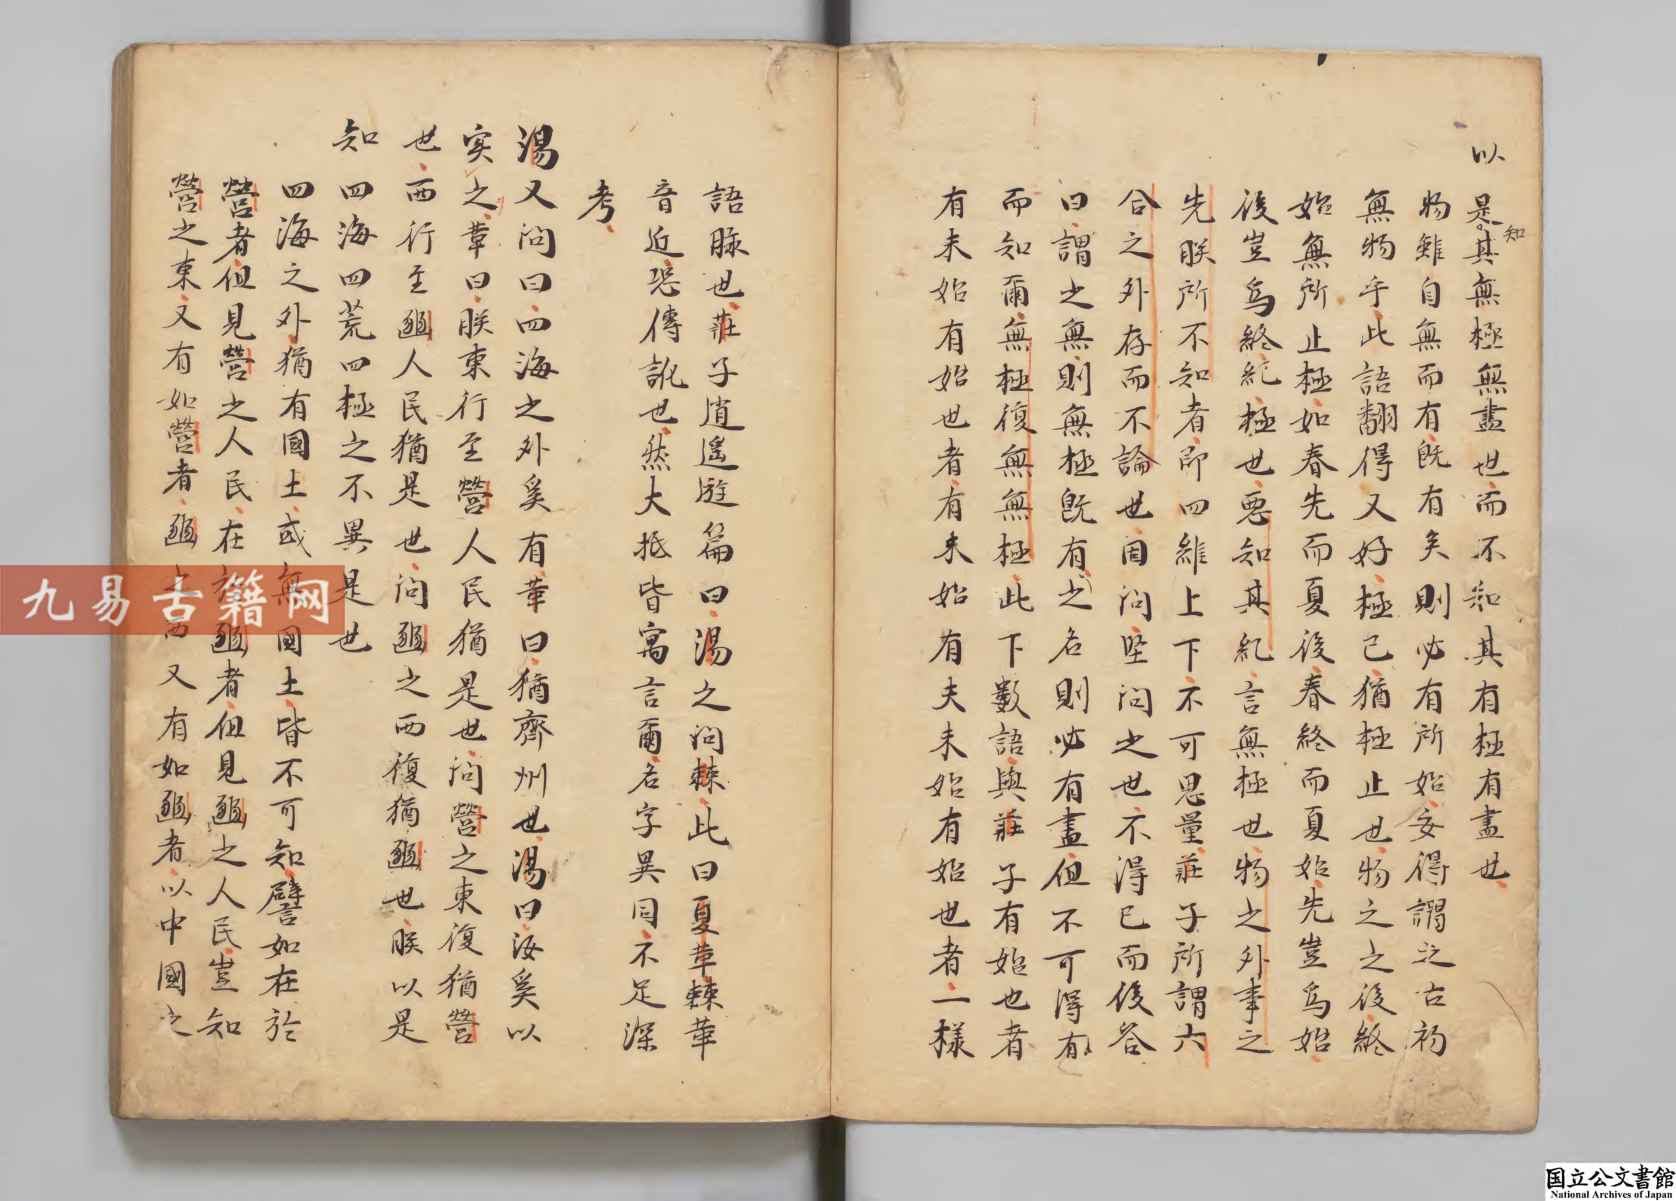 以
是其無極無盡也而不知其有極有盡也
知
物雖自無而有既有矣則必有所始安得謂之古初
無物乎此語翻得又好極已猶極止也物之之後終
始無所止極如春先而夏後春終而夏始先豈為始
後豈為終紀極也惡知其紀言無極也物之外事之
先朕所不知者即四維上下不可思量莊子所謂六
合之外存而不論也固問堅問之也不得已而後答
曰謂之無則無極既有之名則必有盡但不可得有
而知爾無極復無無極此下數語與莊子有始也者
有未始有始也者有未始有夫未始有始也者一樣
語脉也莊子逍遙遊篇曰湯之問棘此曰夏革棘革
音近恐傳訛也然大抵皆寓言爾名字異同不足深
考
湯又問曰四海之外奚有革曰猶齊州也湯曰汝奚以
実之革曰朕東行至營人民猶是也問營之東復猶營
也西行至豳人民猶是也問豳之西復猶豳也朕以是
知四海四荒四極之不異是也
四海之外猶有國土或無國土皆不可知譬如在於
營者但見營之人民在於豳者但見豳之人民豈知
營之東又有如營者豳之西又有如豳者以中國之
九易古籍网
国立公文書館
National Archives of Japan